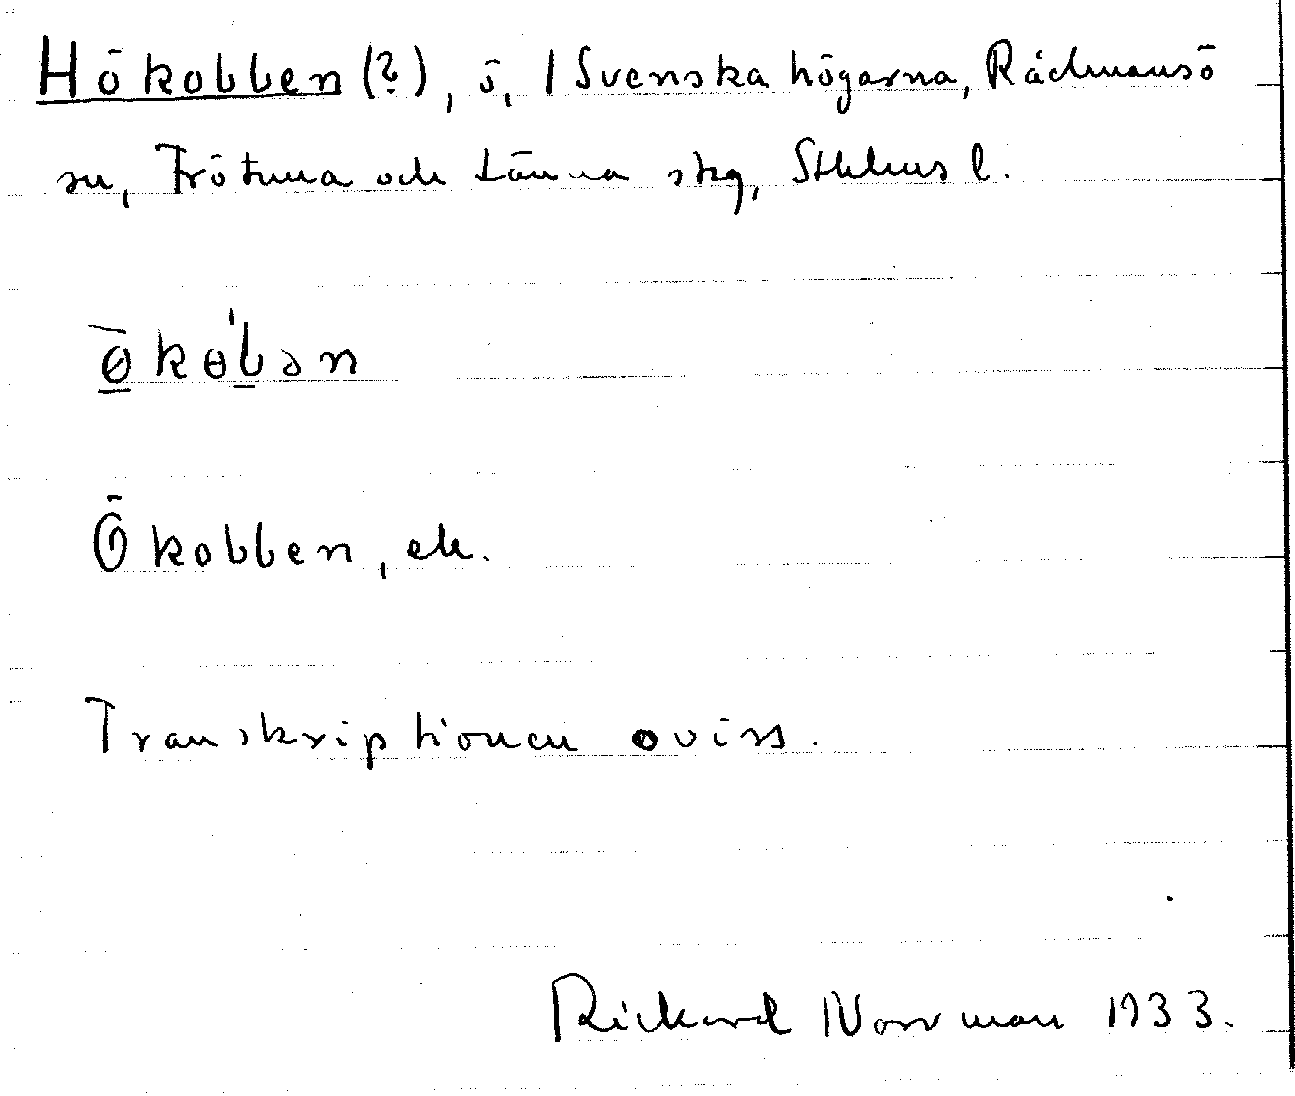 Hökobben (?), ö, i Svenska högarna, Rådmansö
sn, Frötuna och Länna skg, Sthlms l.
ø̱̄kɵ'ḇən
Ökobben, ek.
Transkriptionen oviss.
Rickard Norrman 1933.